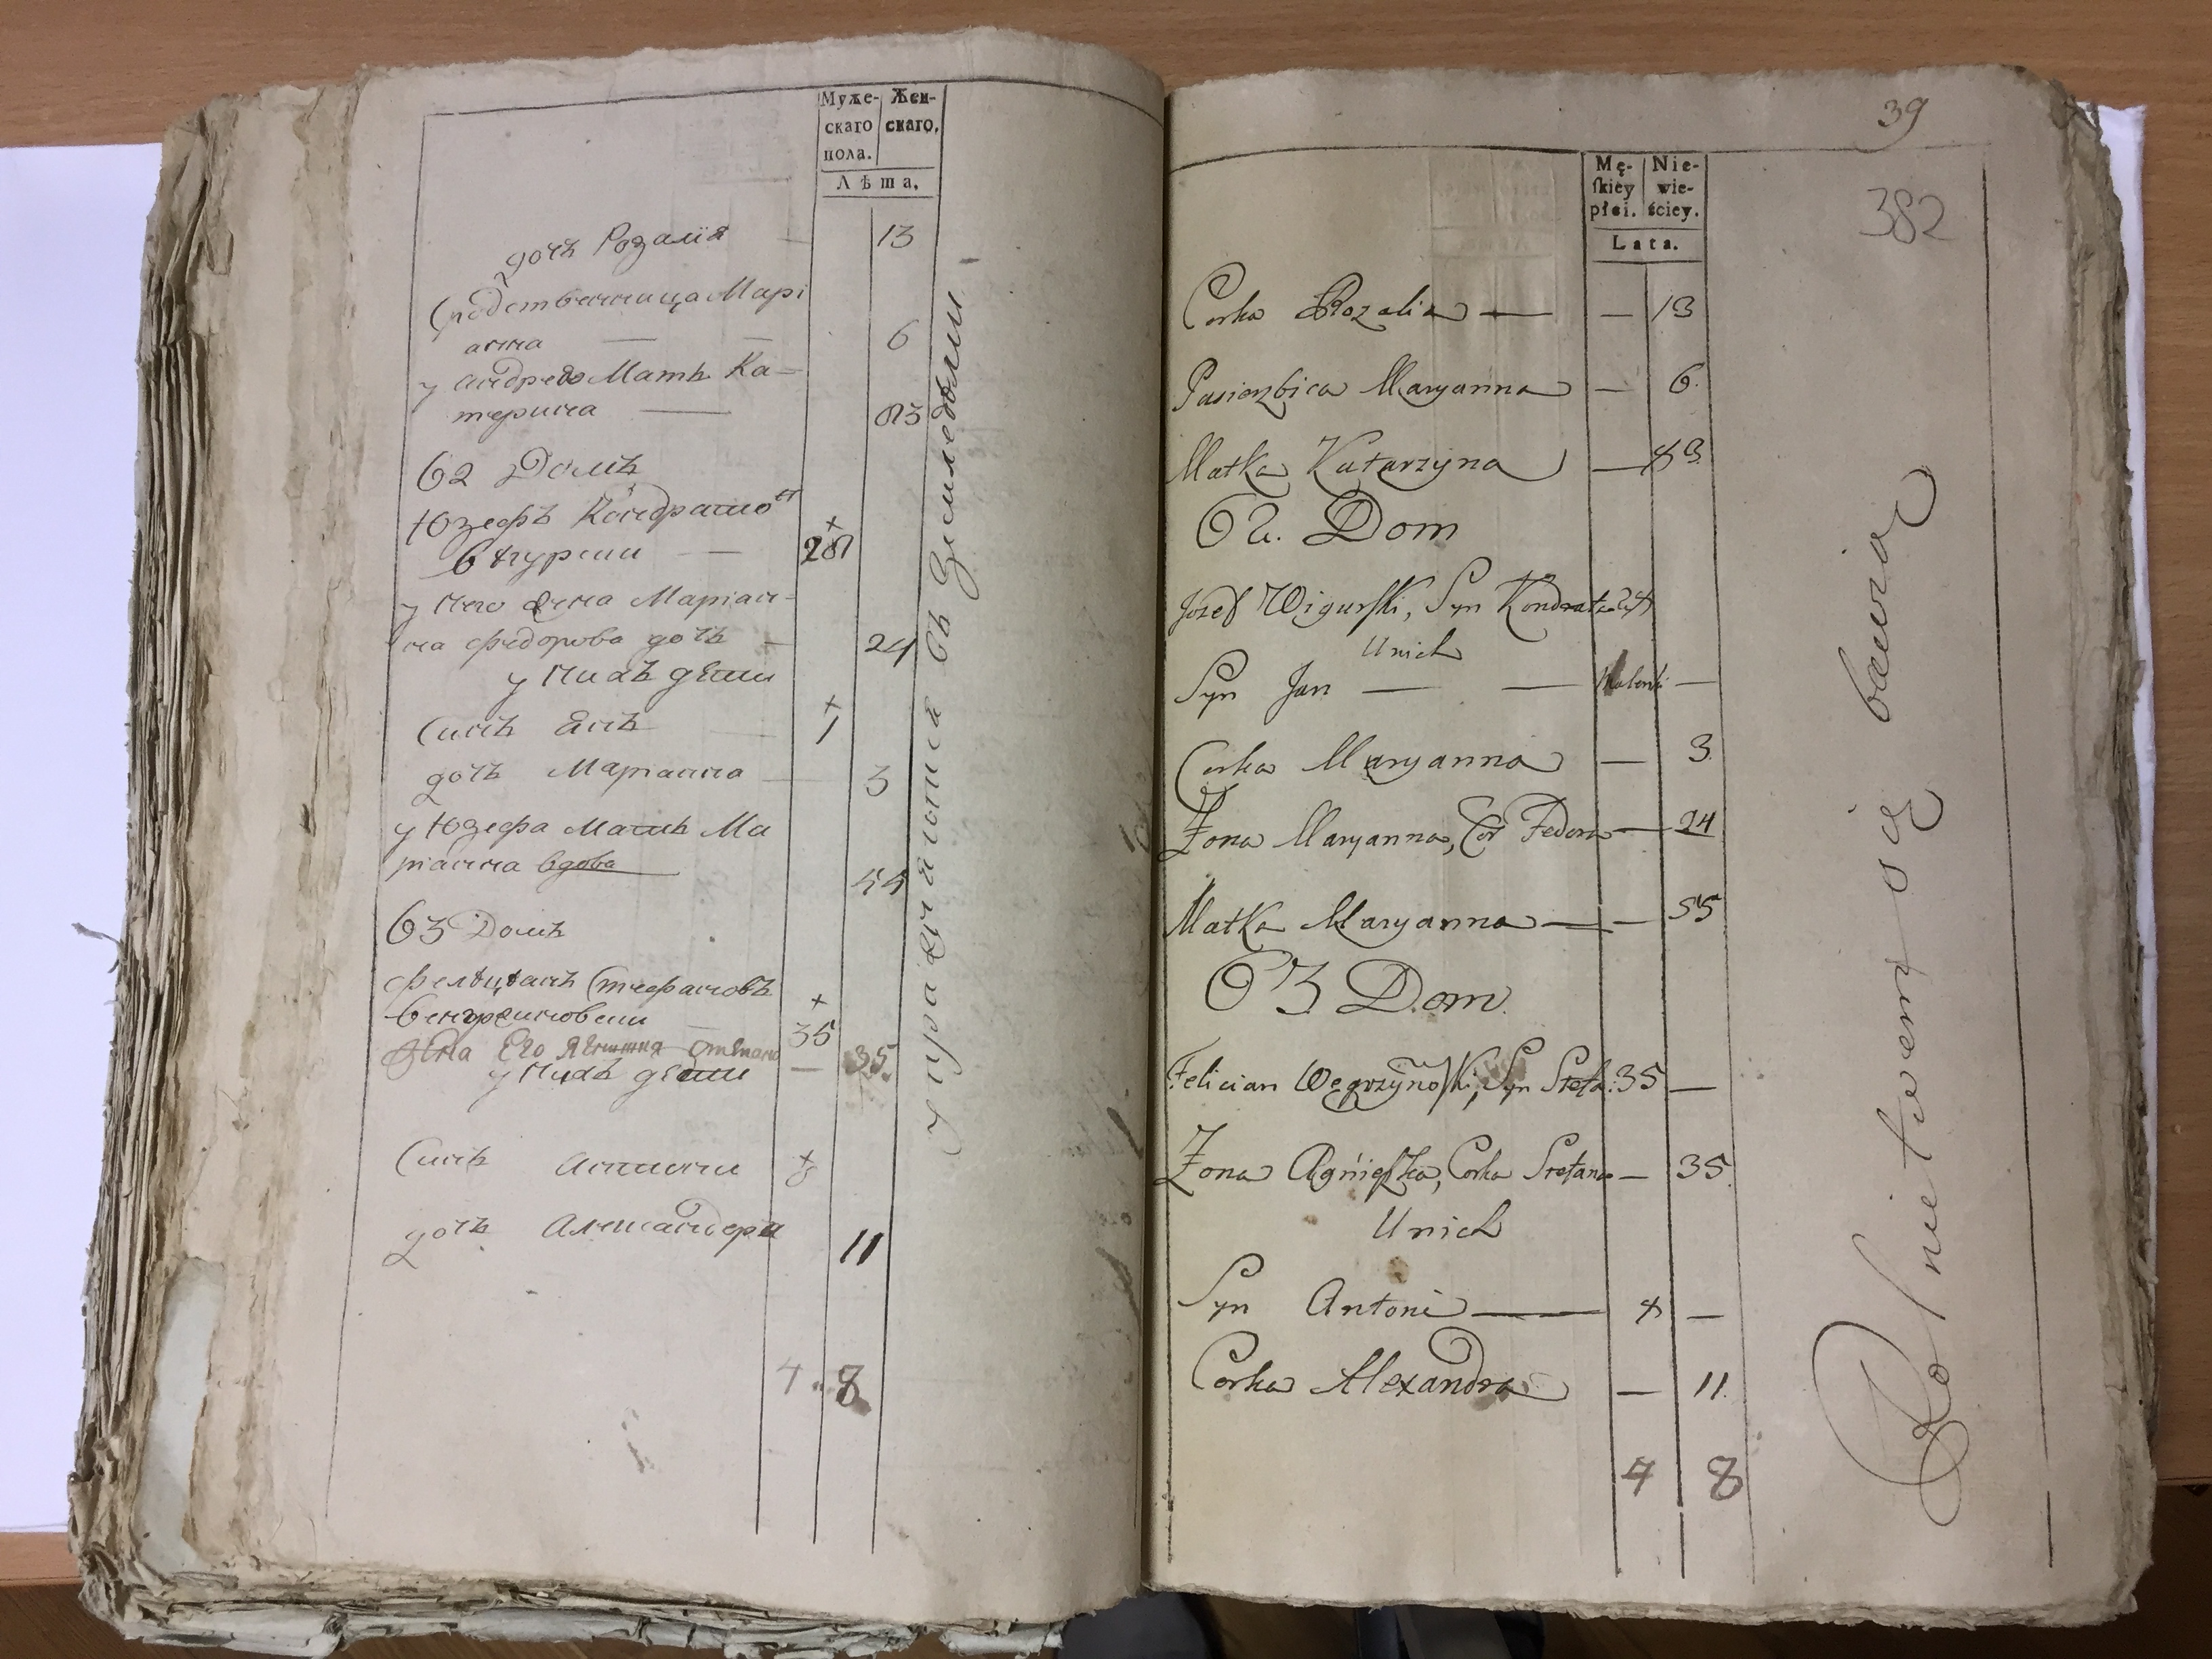 Муже-
скаго
пола.
Жен-
скаго.
Лѣта.
дочь Розалiя — 13
Сродственница Марі
анна — — 6
у андрея Мать Ка-
терина — 83
62 Домъ
Юзефъ Кондратов
Вѣгурски — 28
у него жена Маріан-
на федорова дочь — 24
у нихъ дети
Синъ Янъ — 1
дочь Марианна — 3
у Юзефа Мать Ма
рianна вдова 55
63 Домъ
фелѣцѣанъ Стефановъ
Венгржиновски — 35
жена Его Стефана — 35.
у нихъ дети
Синъ Антони 8
дочь Александра 11
4. 8
упражняются въ Земледѣлии
39
382
Mę-
skiey
płci.
Nie-
wie-
ściey.
Lata.
Corka Rozalia — — 13
Pasierzbica Maryanna — 6.
Matka Katarzyna — 83
62. Dom
Jozef Wigurski, Syn Kondrata 28
Unich
Syn Jan — — —
Corka Maryanna — 3.
Żona Maryanna, Cor Fedora — 24
Matka Maryanna — — 55
63 Dom.
Felician Węgrzynoski, Syn Stefa: 35 —
Żona Agnieszka, Corka Stefana — 35.
Unich
Syn Antoni — 8 —
Corka Alexandra — 11.
4 8
Rolnictwem się bawią